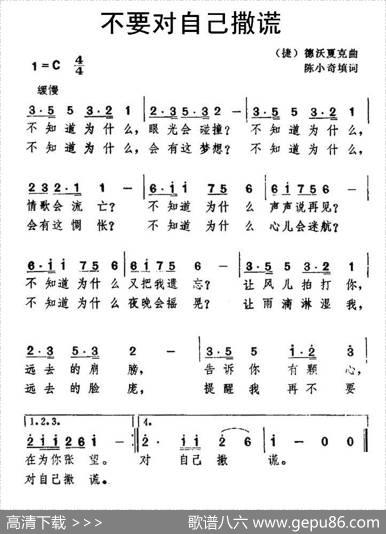 不要对自己撒谎
（捷）德沃夏克曲
1=C 4/4
陈小奇填词
缓慢
3·5 5 3·2 1 | 2·3 5·3 2 - | 3·5 5 3·2 1 |
不知道为什么，眼光会碰撞？ 不知道为什么，
不知道为什么，会有这梦想？ 不知道为什么，
2 3 2·1 1 - | 6·i i 7 5 6 | 6 i 7 5 6 - |
情歌会流亡？ 不知道为什么 声声说再见？
会有这惆怅？ 不知道为什么 心儿会迷航？
6·i i 7 5 6 | 6 i 7 5 6 - | 3·5 5 3·2 1 |
不知道为什么 又把我遗忘？ 让风儿拍打你，
不知道为什么 夜晚会摇晃？ 让雨滴淋湿我，
2·3 5·3 2 - | 3·5 5 i·2 3 |
远去的肩膀， 告诉你有颗心，
远去的脸庞， 提醒我再不要
1.2.3. 4.
2 i i 2 6 i - :| 2· i i 2 i | i - 0 0 ‖
在为你张望。 对自己撒谎。
对自己撒谎。
高清下载 >>> 歌谱八六 www.gepu86.com